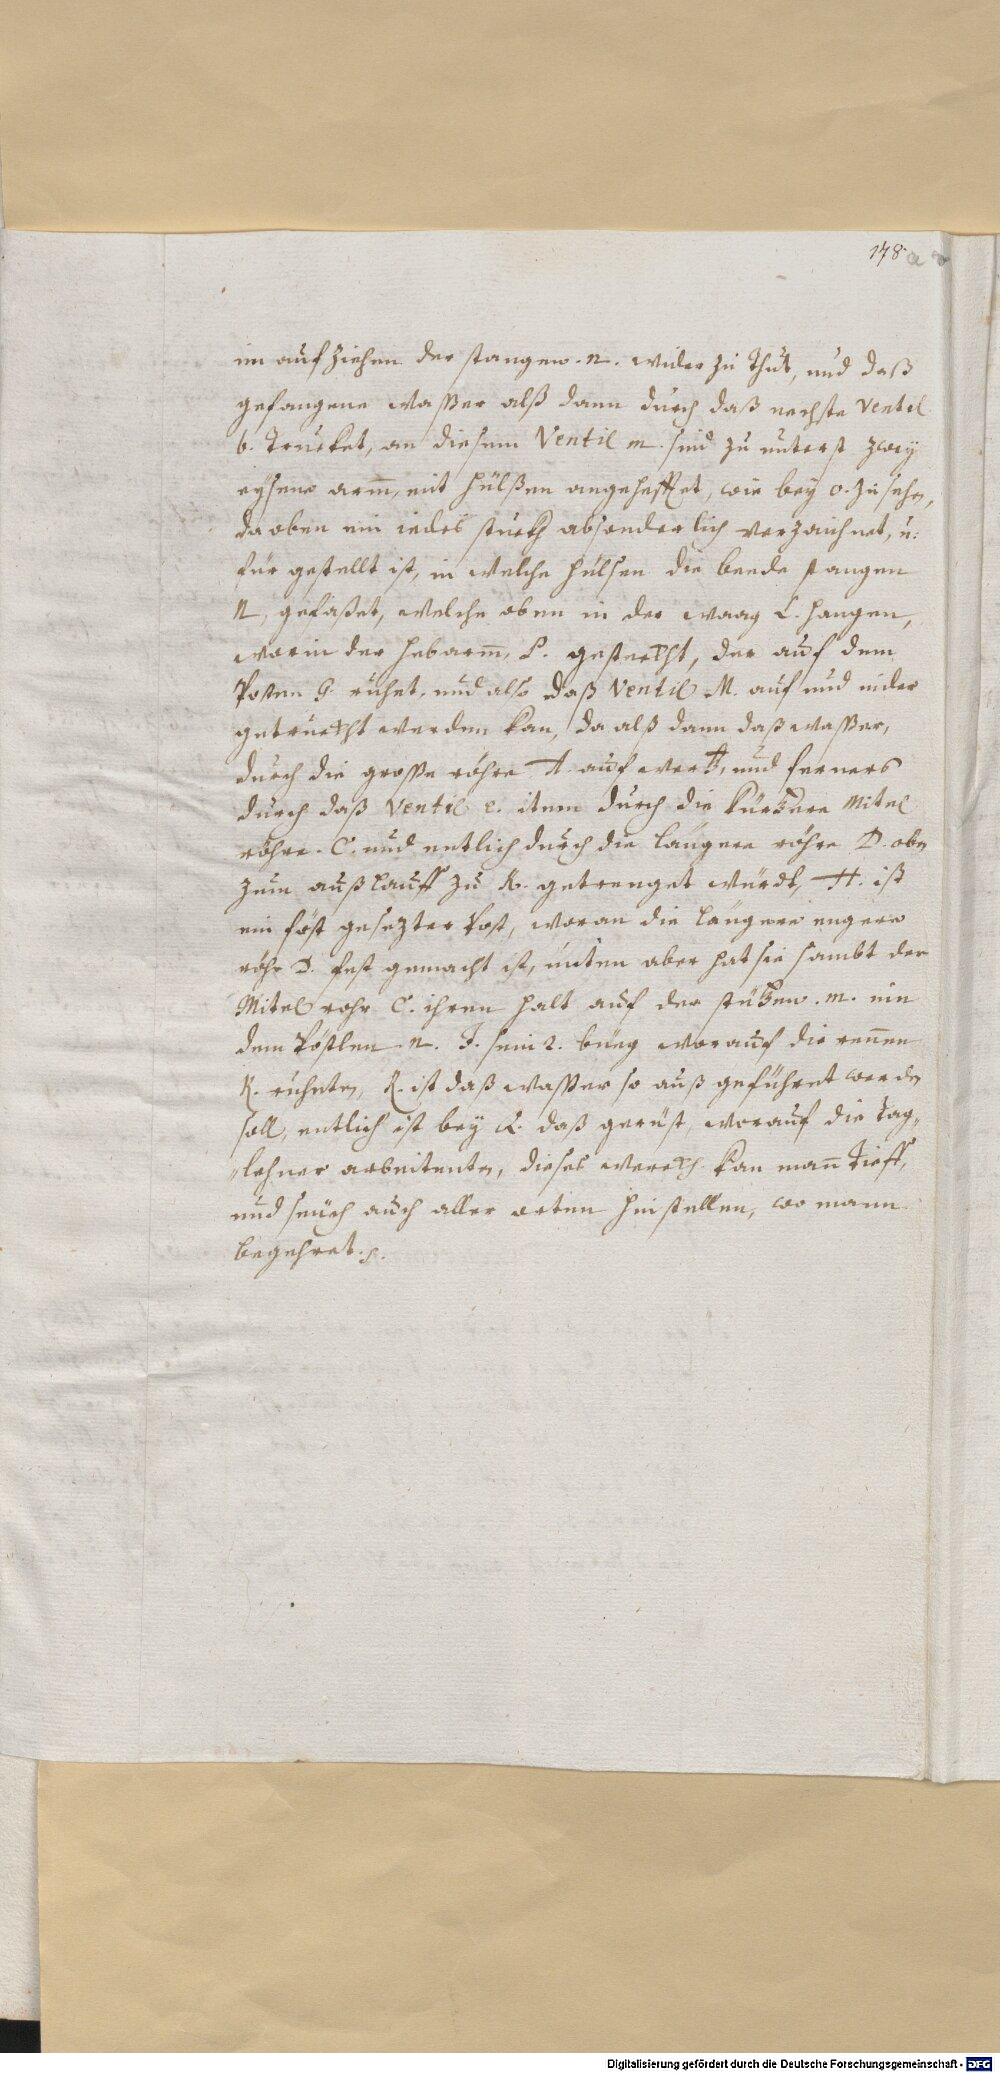 178 a
im aufziehen der stangen. n. wider zu thut, und daß
gefangene wasser alß dann durch daß nechste Ventil
b. trucket, an diesem Ventil m. sind zu unterst zwey
eysene arm, mit hülßen angehefftet, wie bey o. zu sehen,
da oben ein iedes stuckh absonderlich verzaichnet, u:
für gestellt ist, in welche hülsen die beede stangen
N, gefaßet, welche oben in der waag L. hangen,
worin der hebarm, P. gesteckht, der auf dem
Posten G. ruhet, und also daß Ventil M. auf und nider
getruckht werden kan, da alß dann daß wasser,
durch die grosse röhre A. aufwertz, und ferners
durch daß Ventil e. item durch die kürtzere Mitel
röhre. C. und entlich durch die längere röhre D. oben
zum außlauff zu K. getrenget würdt, H. ist
ein föst gesezter Post, woran die längere engere
röhr D. fest gemacht ist, unten aber hat sie sambt der
Mitel rohr C. ihren halt auf der stützen. m. ein
dem Pöstlen n. J. sein 2. büeg worauf die rennen
K. ruheten, R. ist daß wasser so auß geführet werden
soll, entlich ist bey Q. daß gerüst, worauf die Tag„
„lehner arbeitenten, dieses werckh kan mann tieff,
und seüch auch aller orten hinstellen, wo mann
begehret.
Digitalisierung gefördert durch die Deutsche Forschungsgemeinschaft - DFG